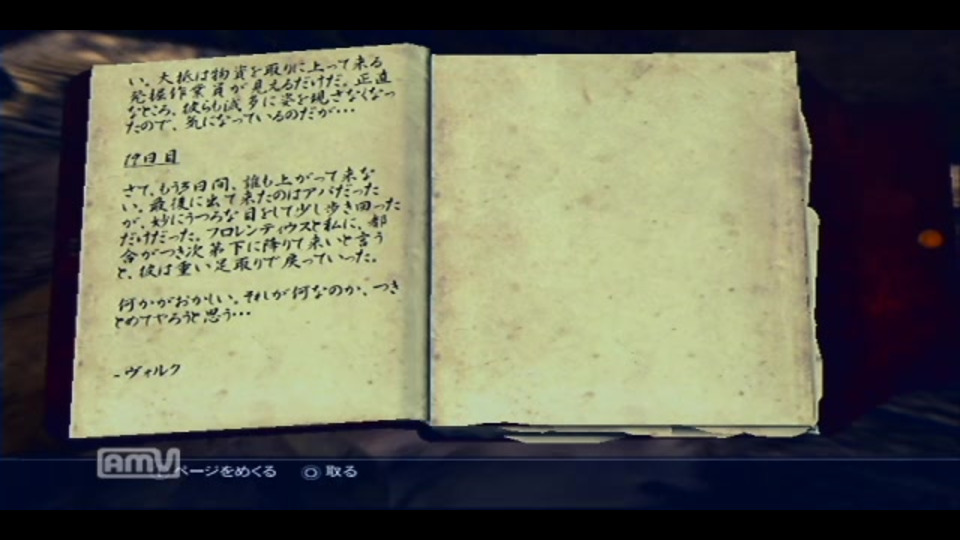 い。大抵は物資を取りに上って来る
発掘作業員が見えるだけだ。正直
なところ、彼らも滅多に姿を現さなくなっ
たので、気になっているのだが…
19日目
さて、もう3日間、誰も上がって来な
い。最後に出て来たのはアバだった
が、妙にうつろな目をして少し歩き回った
だけだった。フロレンティウスと私に、都
合がつき次第下に降りて来いと言う
と、彼は重い足取りで戻っていった。
何かがおかしい。それが何なのか、つき
とめてやろうと思う…
-ヴィルク
AMV
ページをめくる
取る